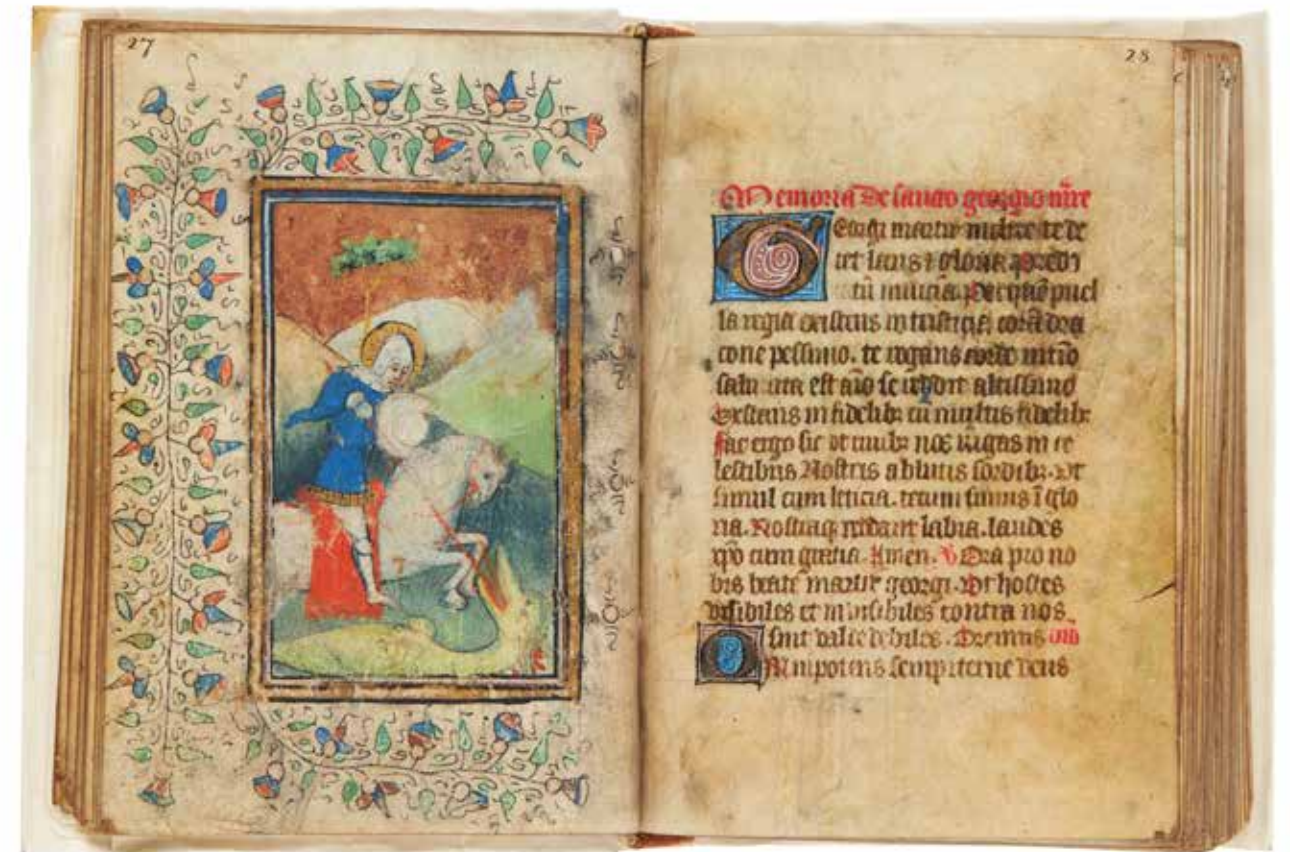 27
28
Memoria de sancto georgio mr̄e
Georgi martir inclite te de
cet laus ⁊ gloria predo
tatū milicia. Per quē puel
la regia existens in tristicia, corā dra
cone pessimo. te rogans corde intīo
saluata est aīo se altissimo
Existens in fidelibꝫ cū multis fidelibꝫ
Fac ergo sic vt ciuibꝫ nos iūgas in ce
lestibus Nostris ablutis sordibꝫ. Vt
simul cum leticia. tecum simus ī glo
ria. Nostraqꝫ reddant labia. laudes
xp̄o cum gratia. Amen. V Ora pro no
bis beate martir georgi. Vt hostes
visibiles et inuisibiles contra nos.
sint valde debiles. Oremus orō
Omnipotens sempiterne deus